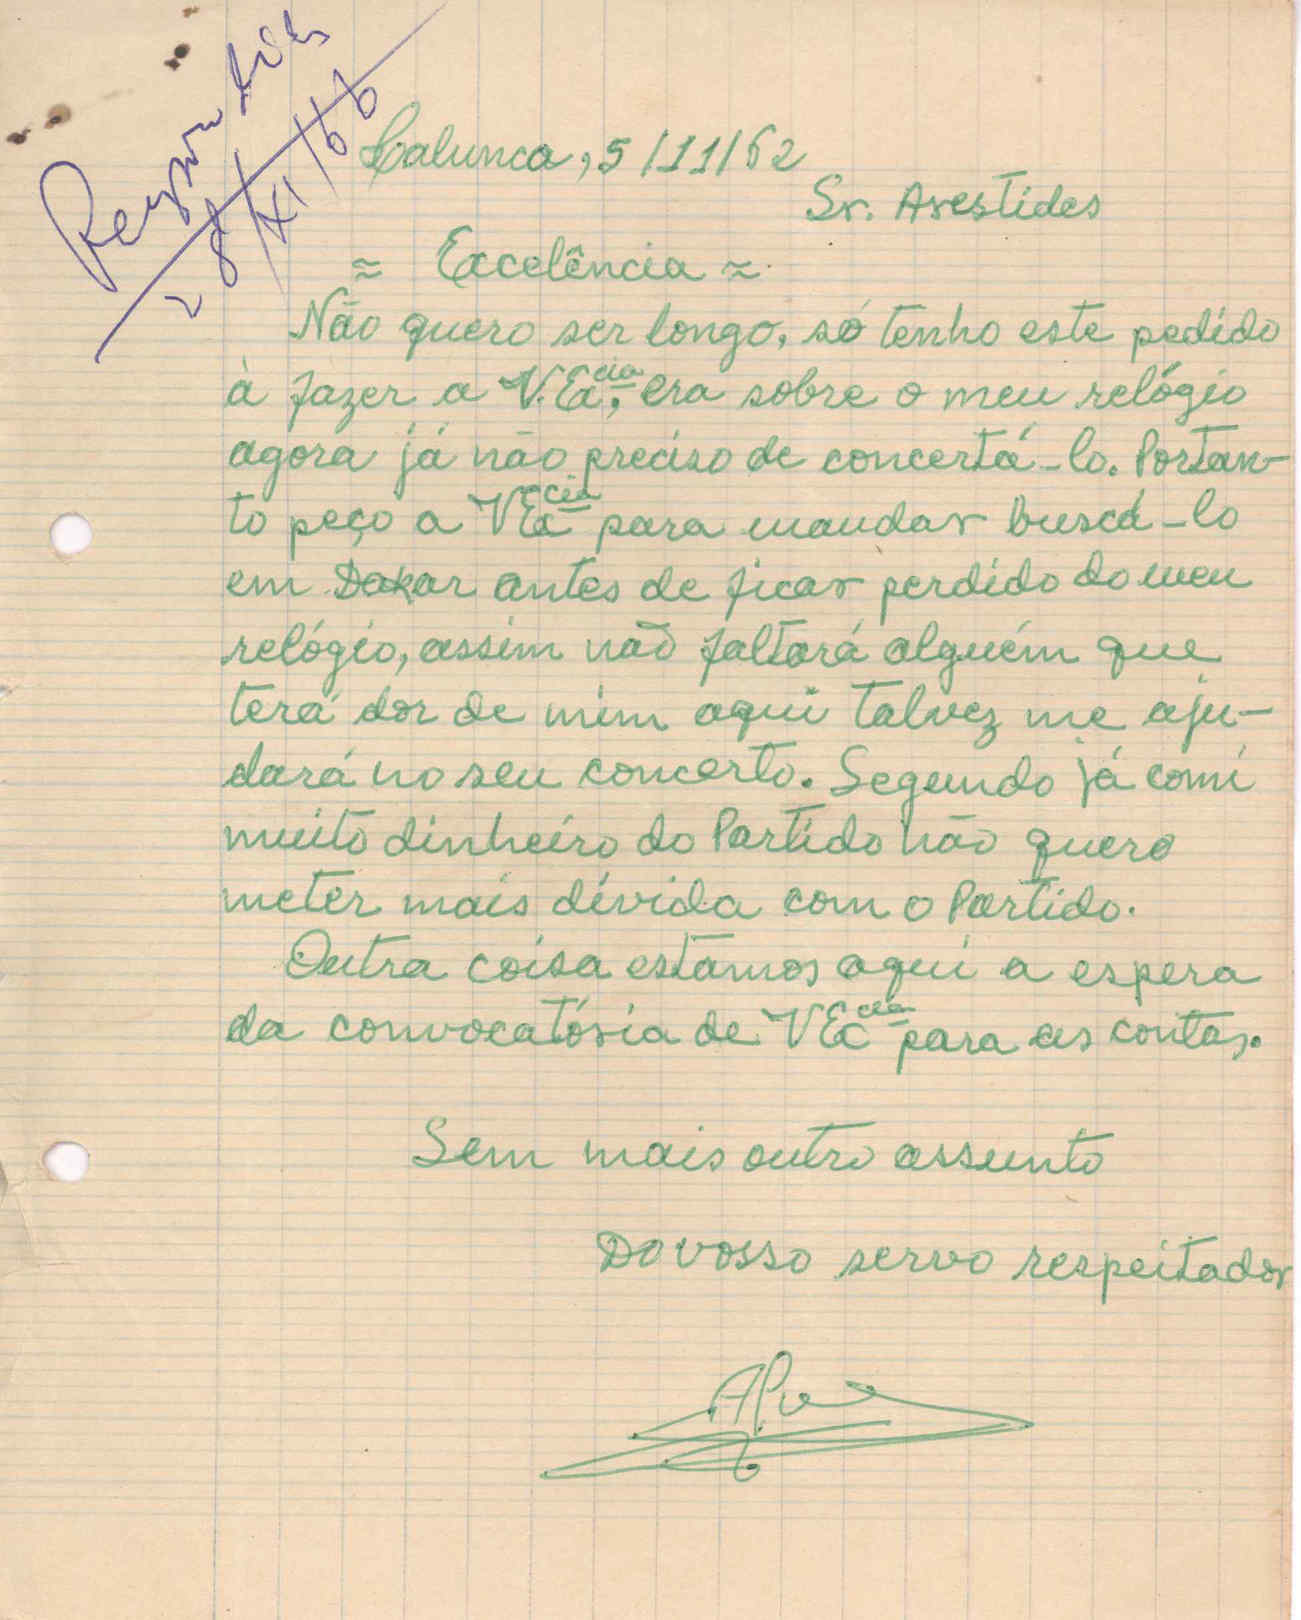 28/XI/66
Calunca, 5/11/62
Sr. Arestides
≈ Excelência ≈
Não quero ser longo, só tenho este pedido
à fazer a V.Excia, era sobre o meu relógio
agora já não preciso de concertá-lo. Portan-
to peço a VExcia para mandar buscá-lo
em Dakar antes de ficar perdido do meu
relógio, assim não faltará alguém que
terá dor de mim aqui talvez me aju-
dará no seu concerto. Segundo já comi
muito dinheiro do Partido não quero
meter mais dívida com o Partido.
Outra coisa estamos aqui a espera
da convocatória de VExcia para as contas.
Sem mais outro assunto
Do vosso servo respeitador